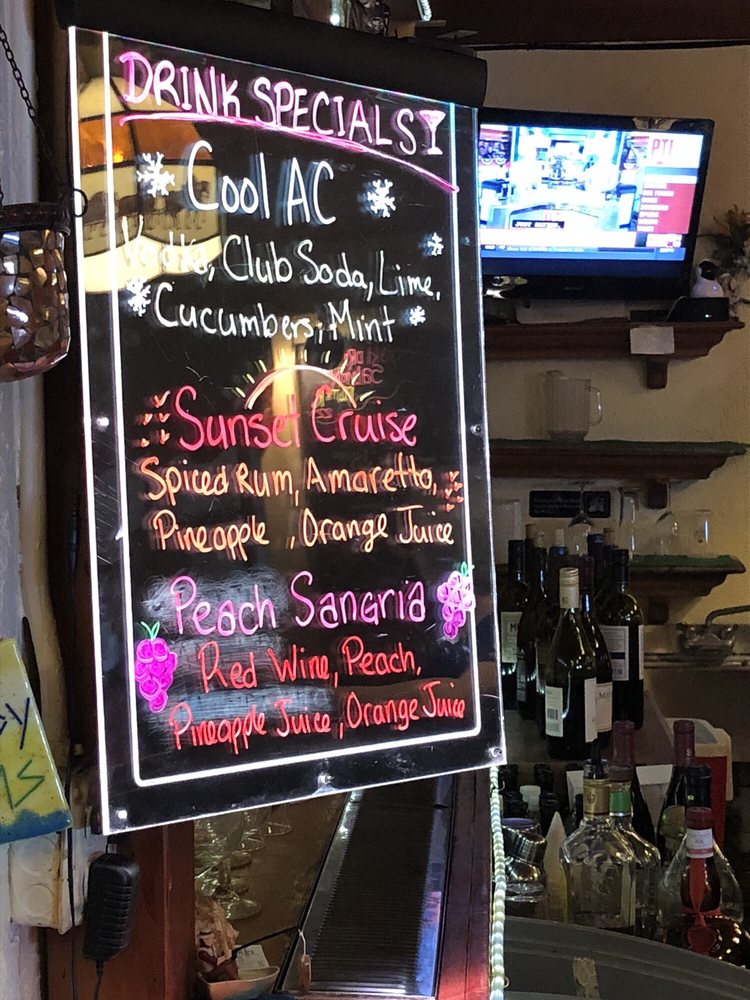 DRINK SPECIALS
Cool AC
Vodka, Club Soda, Lime,
Cucumbers, Mint
Sunset Cruise
Spiced Rum, Amaretto,
Pineapple , Orange Juice
Peach Sangria
Red Wine, Peach,
Pineapple Juice , Orange Juice
PTI